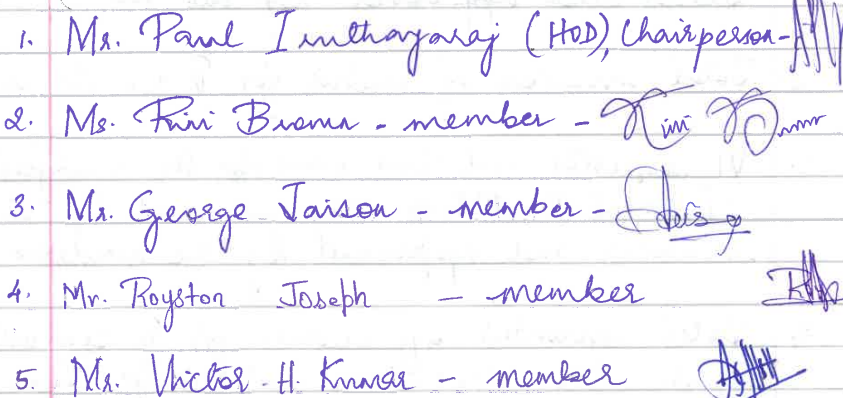 1. Mr. Paul Inthayaraj (HOD), Chairperson -
2. Ms. Rini Broma - member -
3. Mr. George Jaison - member -
4. Mr. Royston Joseph - member
5. Mr. Victor H. Kumar - member